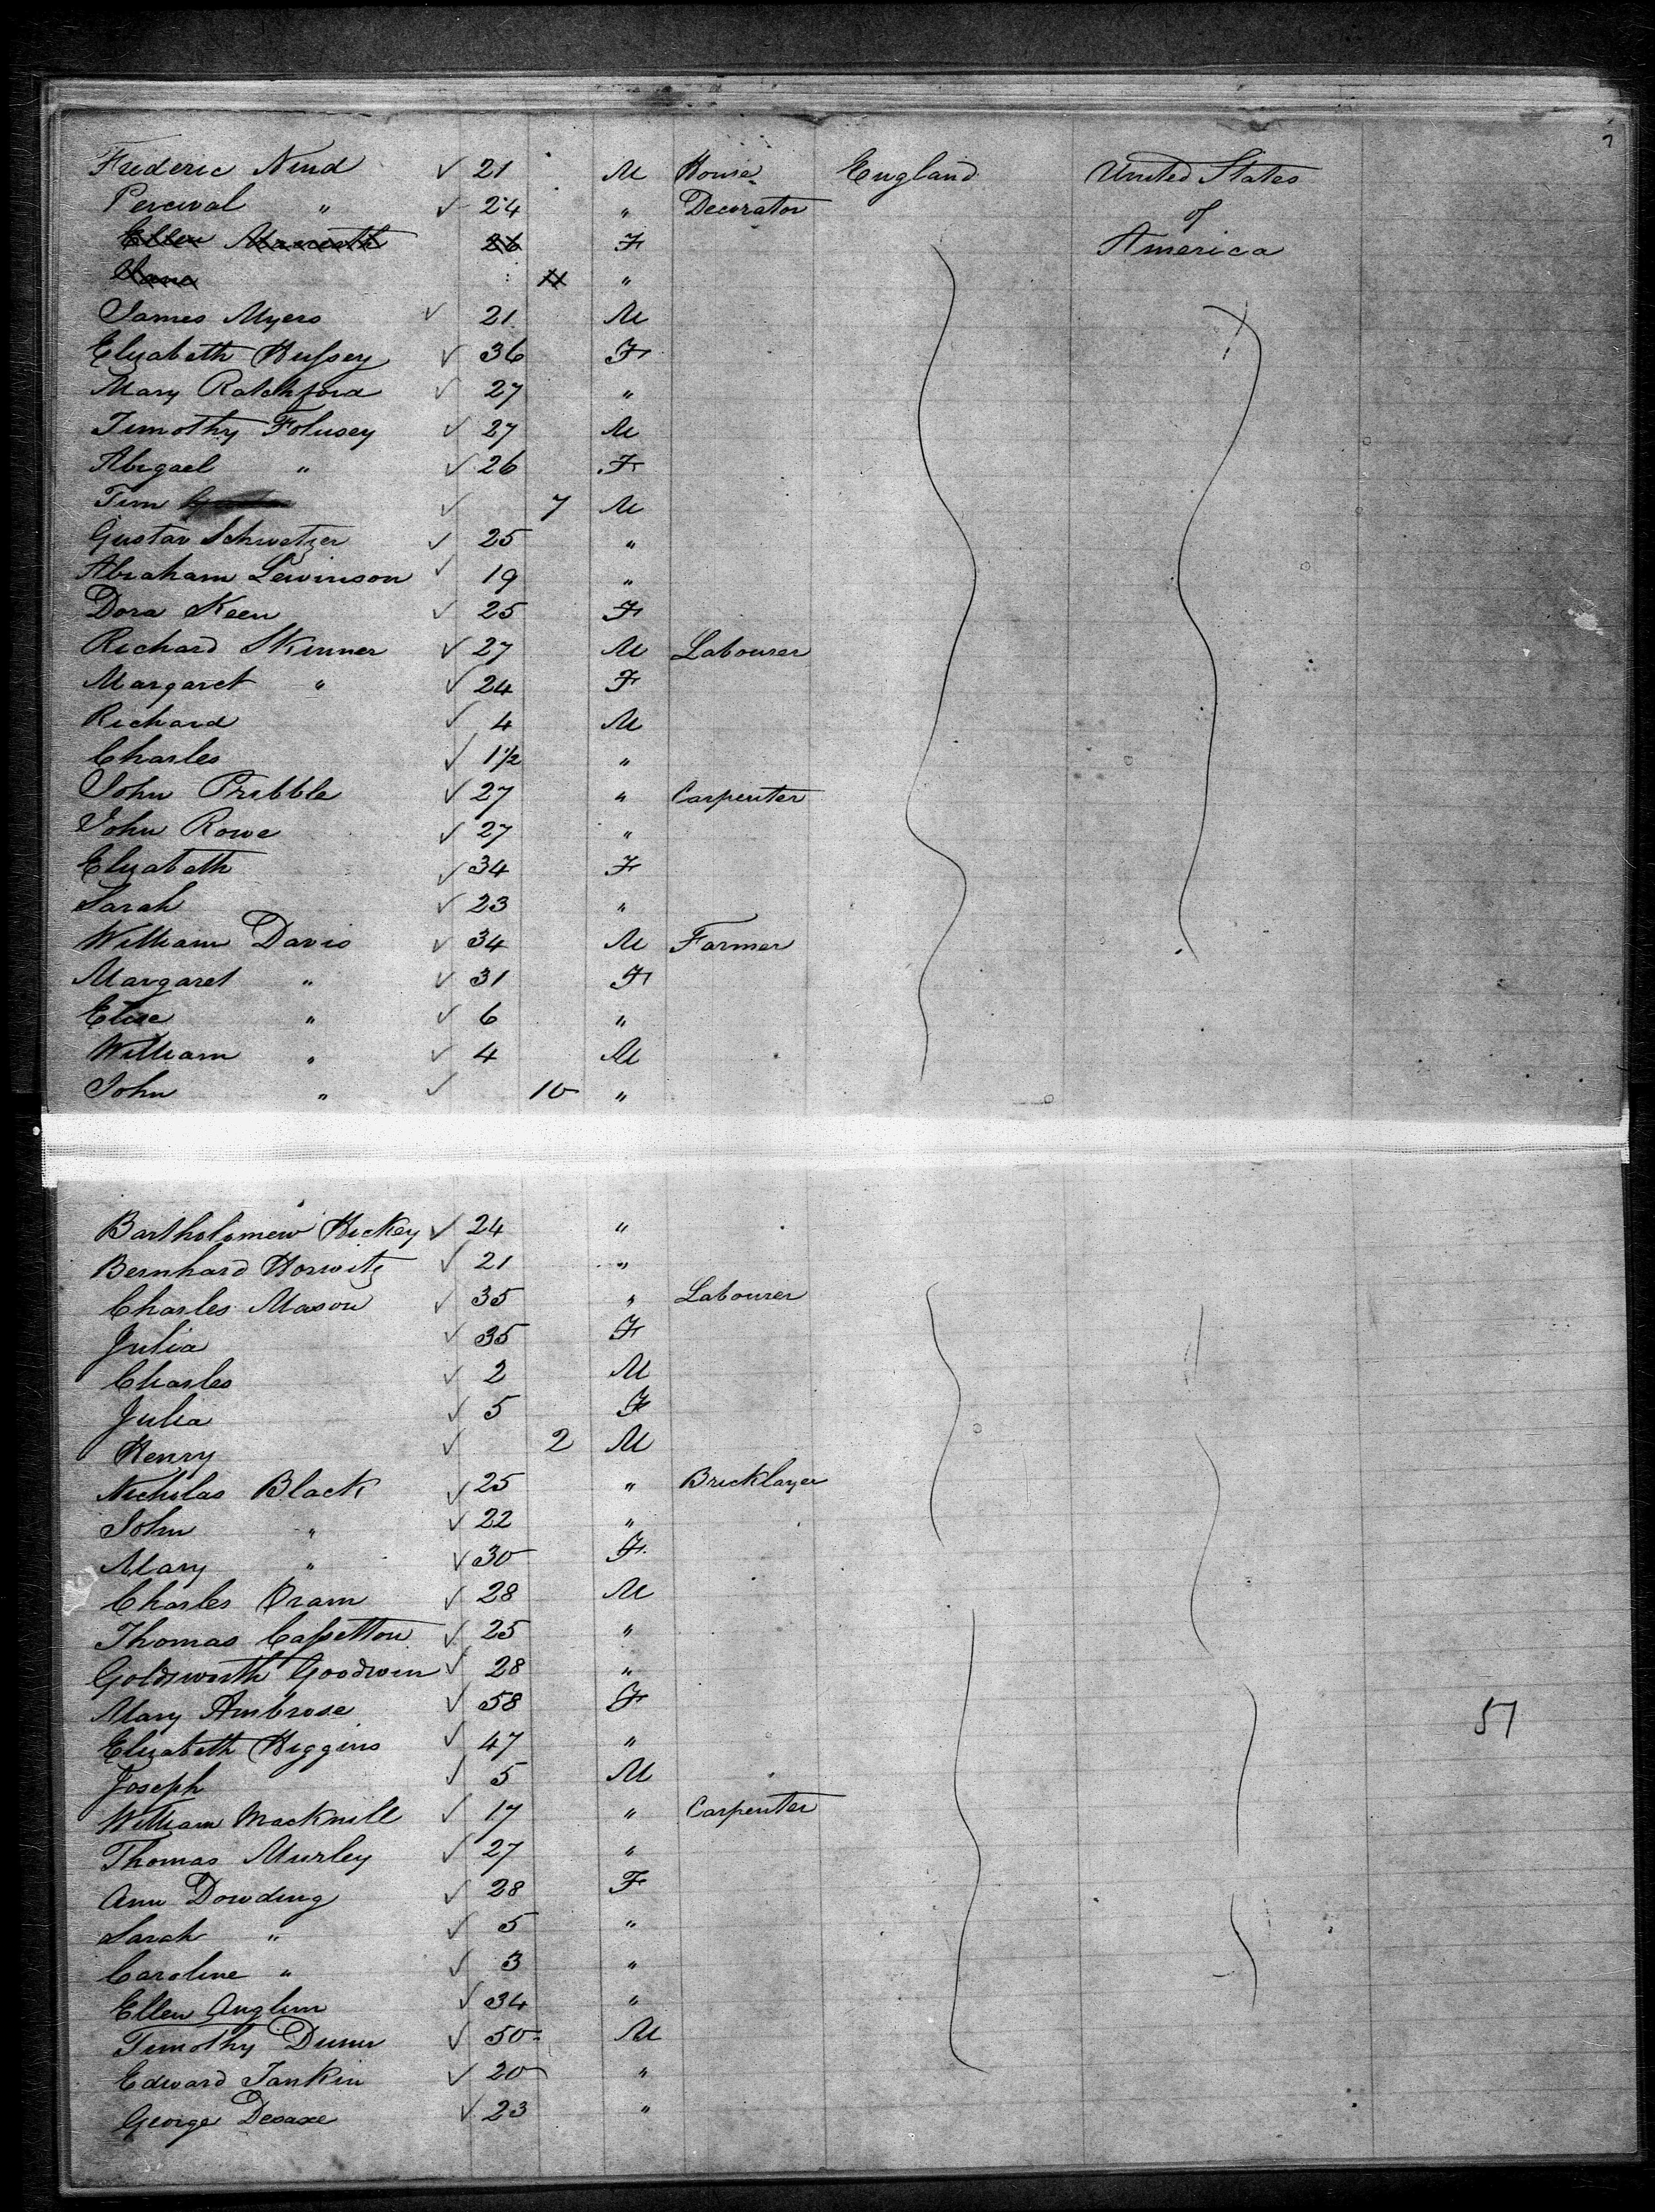 Frederic Nind ✓ 21 M House England United States
Percival " ✓ 24 " Decorator of
Ellen 26 F America
Jane 11 "
James Myers ✓ 21 M
Elizabeth Hussey ✓ 36 F
Mary Ratchford ✓ 27 "
Timothy Folusey ✓ 27 M
Abigael " ✓ 26 F
Tim ✓ 7 M
Gustav Schwetzer ✓ 25 "
Abraham Lewinson ✓ 19 "
Dora Keen ✓ 25 F
Richard Skinner ✓ 27 M Labourer
Margaret " ✓ 24 F
Richard ✓ 4 M
Charles ✓ 1½ "
John Pribble ✓ 27 " Carpenter
John Rowe ✓ 27 "
Elizabeth ✓ 34 F
Sarah ✓ 23 "
William Davis ✓ 34 M Farmer
Margaret " ✓ 31 F
Elise " ✓ 6 "
William " ✓ 4 M
John " ✓ 10 "
Bartholomew Hickey ✓ 24 "
Bernhard Horwitz ✓ 21 "
Charles Mason ✓ 35 " Labourer
Julia ✓ 35 F
Charles ✓ 2 M
Julia ✓ 5 F
Henry ✓ 2 M
Nicholas Black ✓ 25 " Bricklayer
John " ✓ 22 "
Mary " ✓ 30 F
Charles Oram ✓ 28 M
Thomas Cassetton ✓ 25 "
Goldsworth Goodwin ✓ 28 "
Mary Ambrose ✓ 58 F 51
Elizabeth Higgins ✓ 47 "
Joseph ✓ 5 M
William Macknill ✓ 17 " Carpenter
Thomas Murley ✓ 27 "
Ann Dowding ✓ 28 F
Sarah " ✓ 5 "
Caroline " ✓ 3 "
Ellen Anglim ✓ 34 "
Timothy Dunn ✓ 50 M
Edward Jankin ✓ 20 "
George Desaxe ✓ 23 "